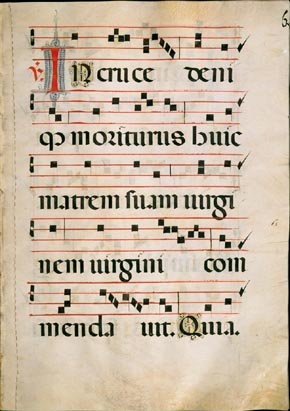 ℣ In cruce deni
qꝫ moriturus huic
matrem suam uirgi
nem uirgini com
menda uit. Quia.